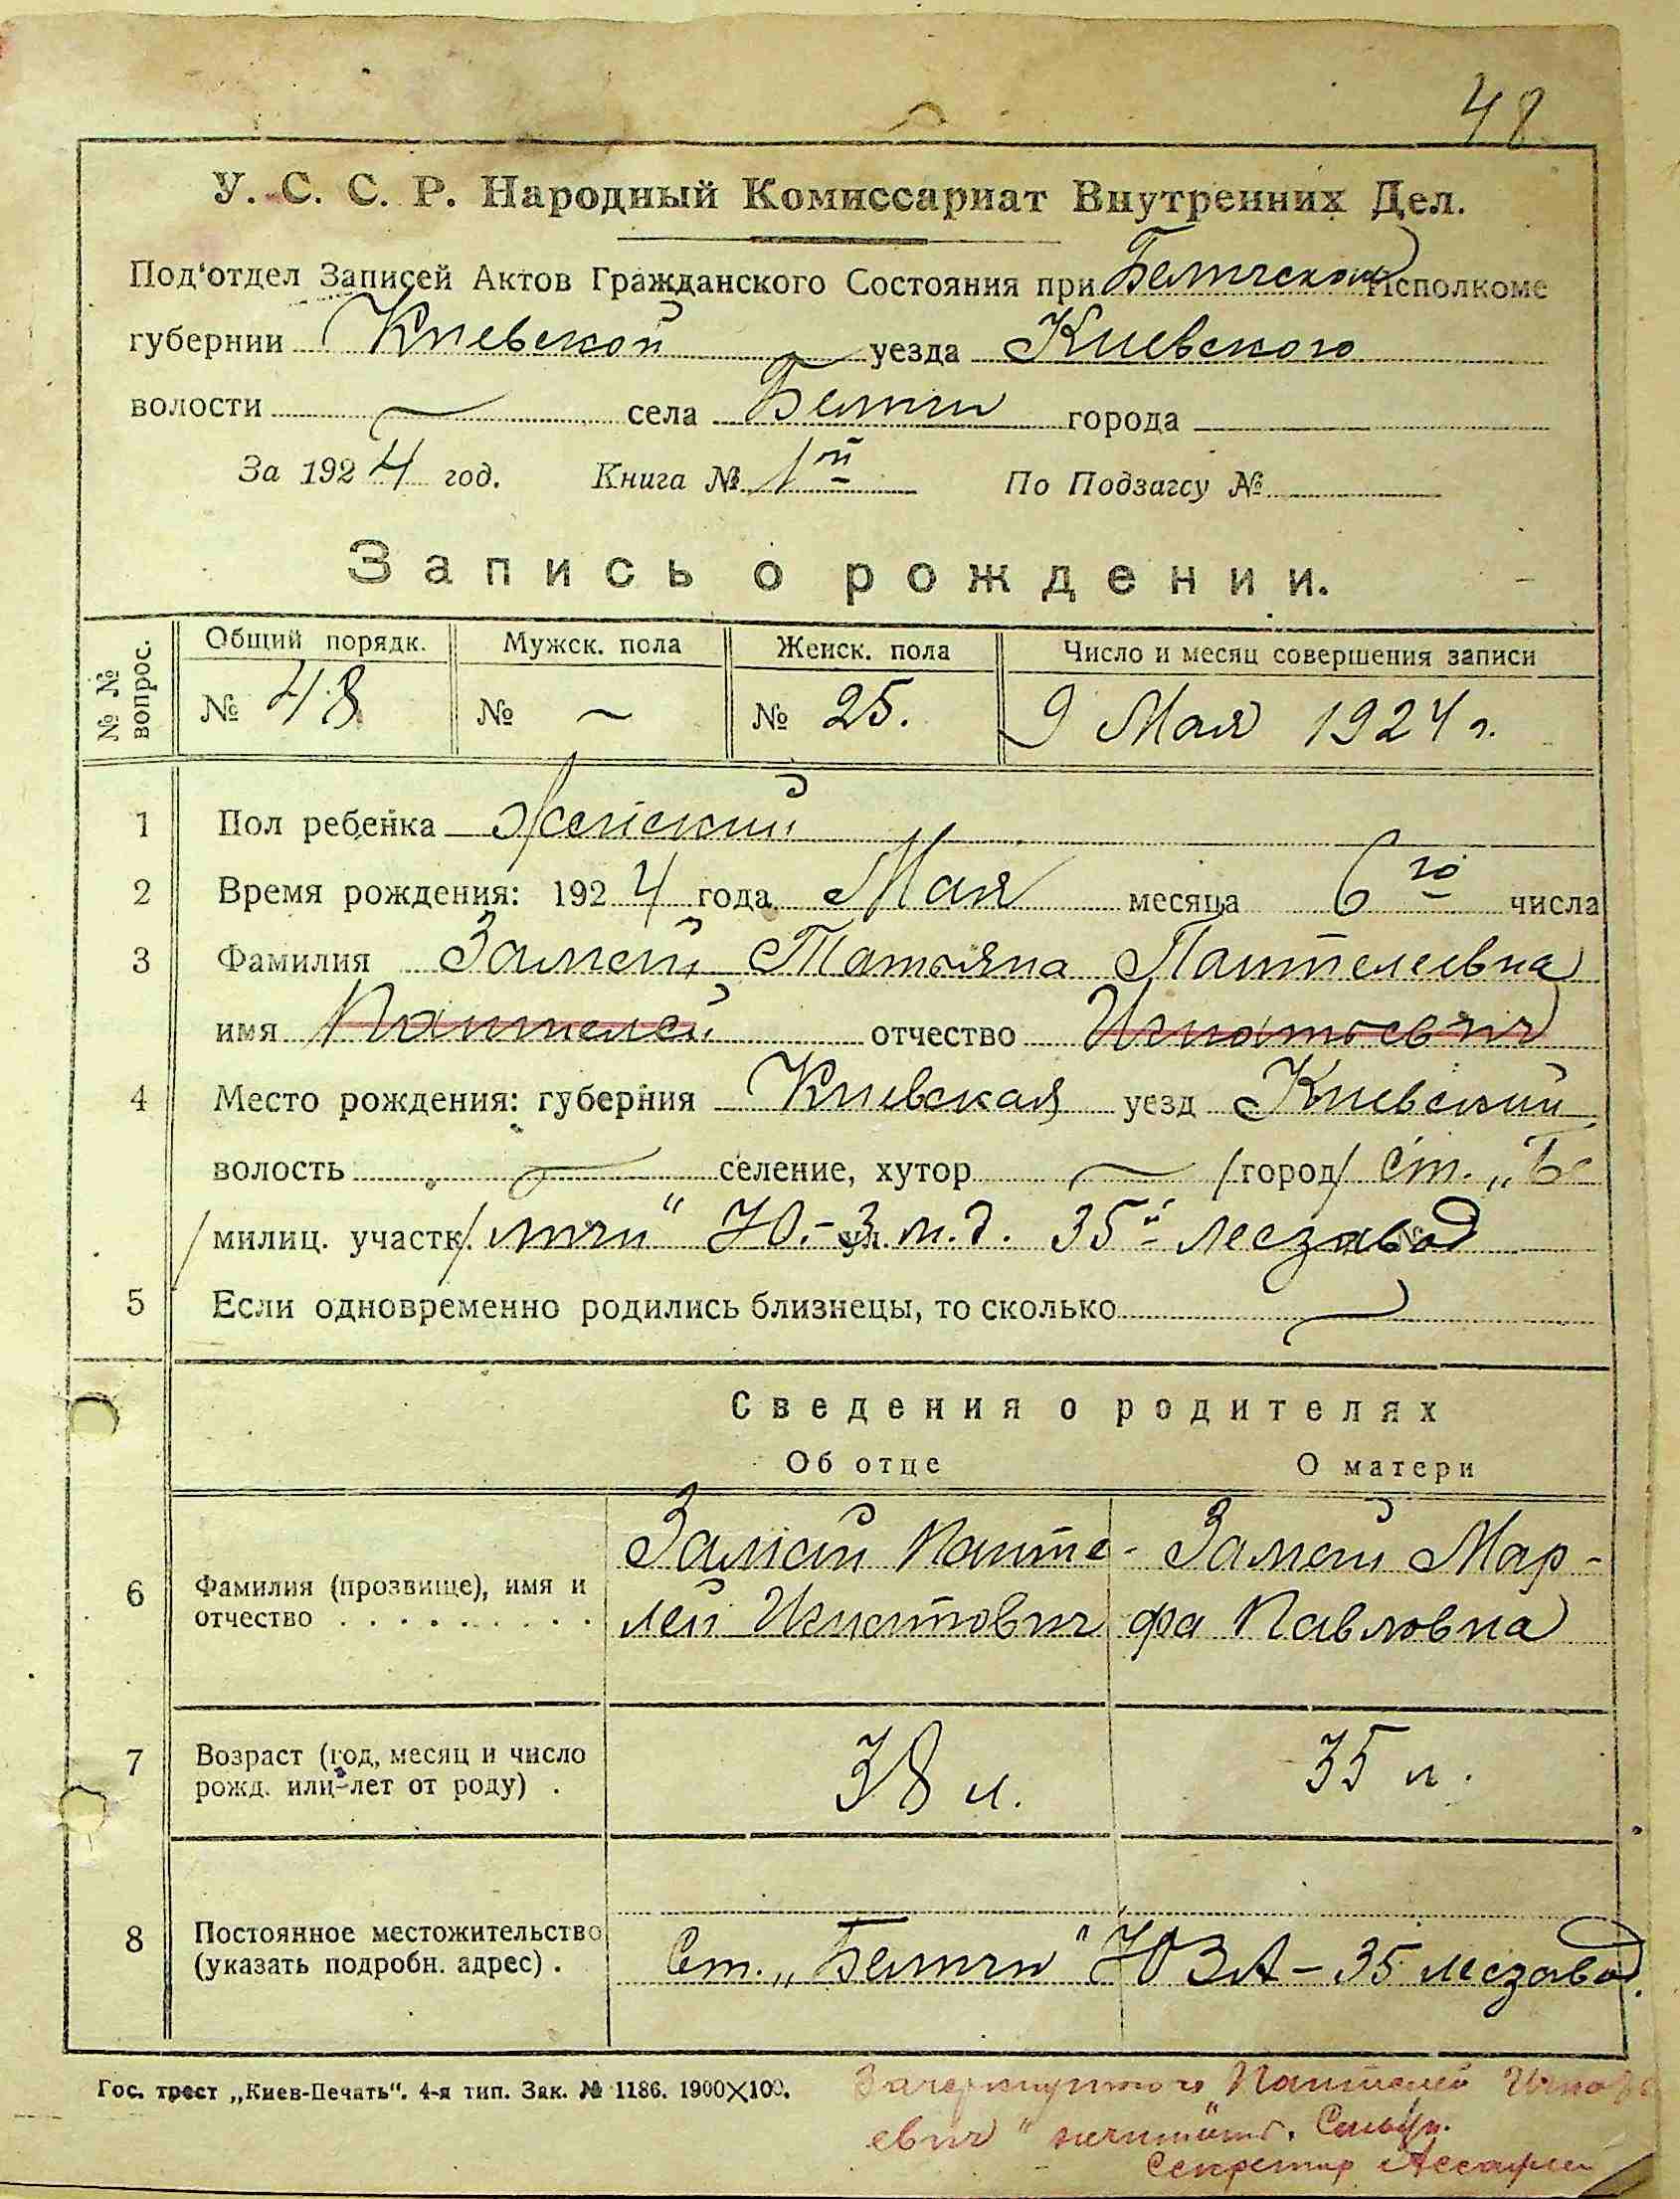 48
У. С. С. Р. Народный Комиссариат Внутренних Дел.
Под'отдел Записей Актов Гражданского Состояния при Белическом Исполкоме
губернии Киевской уезда Киевского
волости — села Беличи города
За 1924 год. Книга № 1й По Подзагсу №
Запись о рождении.
№ № вопрос. Общий порядк. Мужск. пола Женск. пола Число и месяц совершения записи
№ 48 № — № 25. 9 Мая 1924 г.
1 Пол ребенка Женский
2 Время рождения: 1924 года Мая месяца 6го числа
3 Фамилия Замей Татьяна Пантелеевна
имя Пантелей отчество Игнатьевич
4 Место рождения: губерния Киевская уезд Киевский
волость — селение, хутор — /город/ ст. „Бе
/милиц. участк/. личи" Ю.-З. ж.д. 35й лесзавод
5 Если одновременно родились близнецы, то сколько —
Сведения о родителях
Об отце О матери
Замей Панте- Замей Мар-
6 Фамилия (прозвище), имя и отчество лей Игнатович фа Павловна
7 Возраст (год, месяц и число рожд. или лет от роду) . 38 л. 35 л.
8 Постоянное местожительство (указать подробн. адрес) . Ст. „Беличи" ЮЗЖ – 35 лесзавод.
Гос. трест „Киев-Печать". 4-я тип. Зак. № 1186. 1900×100.
Зачеркнутого Пантелей Игнать
евич" не читать.
Секретар